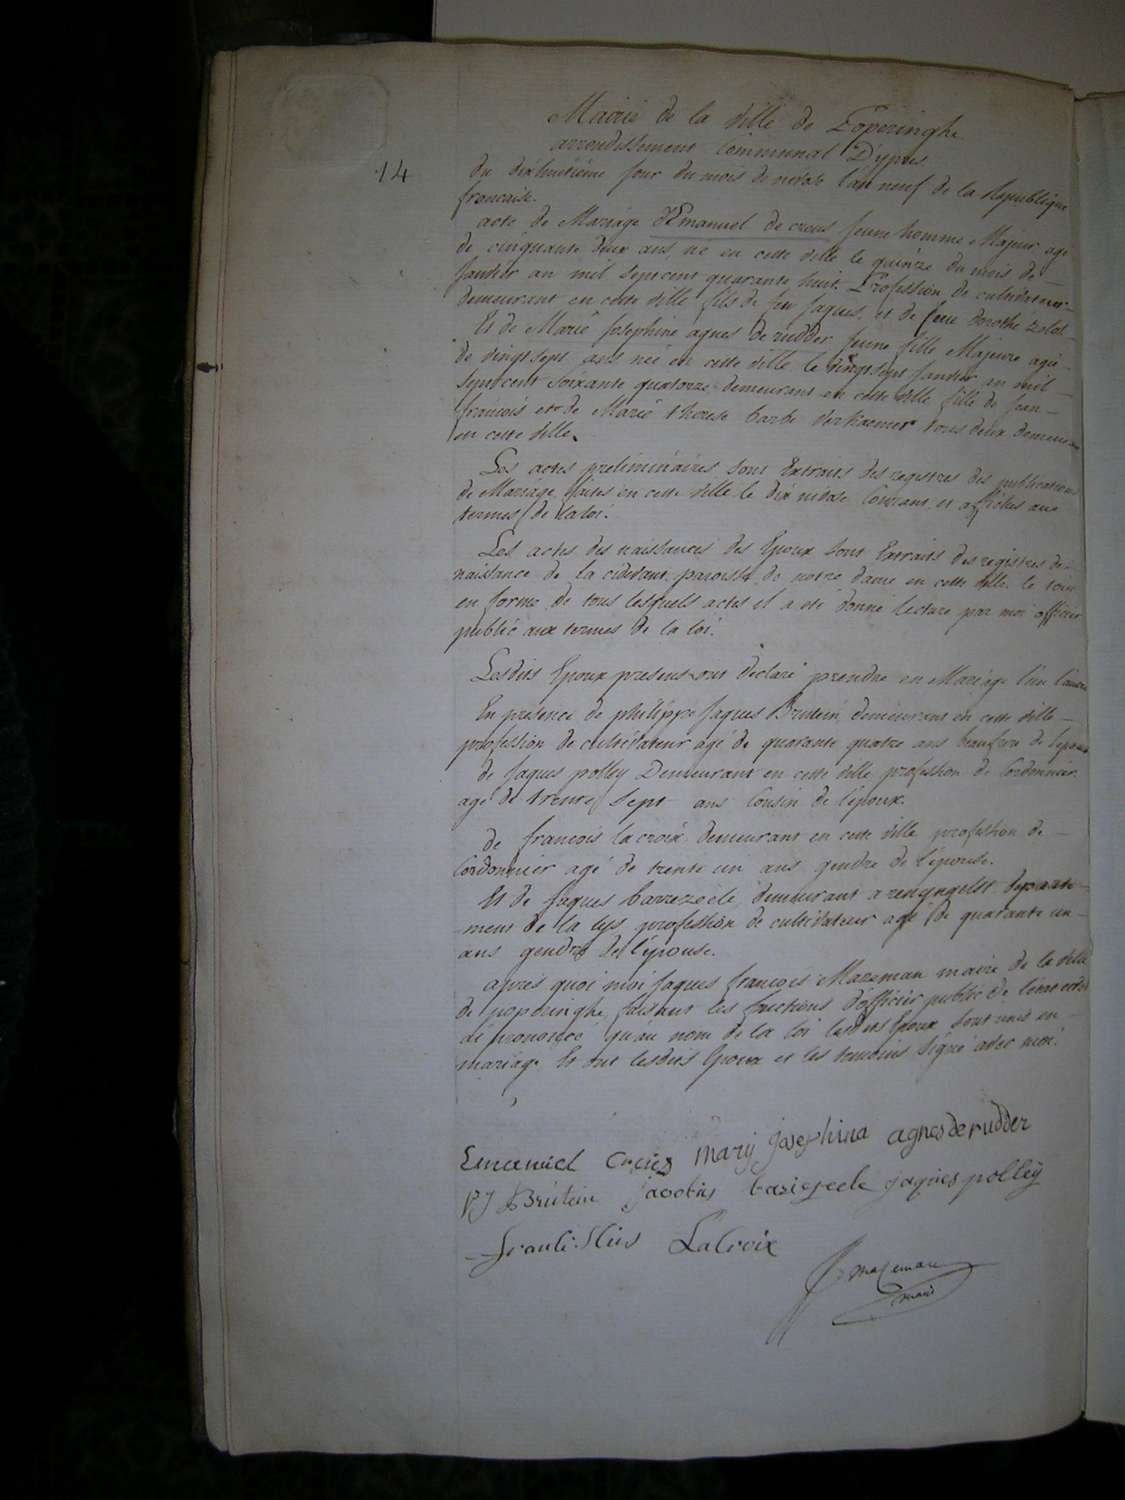 Mairie de la ville de Poperinghe
arrondissement Communal D'ypres
14
du dixhuitiéme jour du mois de nivose l'an neuf de la Republique
francaise.
acte de Mariage d'Emanuel de creus jeune homme Majeur agé
de cinquante deux ans, né en cette ville le quinze du mois de
janvier an mil septcent quarante huit, Profession de cultivateur
demeurant en cette ville fils de feu jaques, et de feue dorothé
Et de Marie Josephine agnes de rudder jeune fille Majeure agée
de vingt sept ans née en cette ville le vingt sept janvier an mil
septcent soixante quatorze demeurant en cette ville fille de fran-
francois et de Marie therese barbe tous deux demeurans
en cette ville.
Les actes preliminaires sont Extraits des registres des publications
de Mariage faites en cette ville le dix nivose courant, et affichés aux
termes de la loi.
Les actes des naissances des Epoux sont Extraits des registres de
naissance de la cidevant paroisse de notre dame en cette ville le tout
en forme, de tous lesquels actes il a été donné lecture par moi officier
public aux termes de la loi.
Lesdits Epoux presens ont declaré prendre en Mariage l'un l'autre
En présence de philippe Jaques Brutein, demeurant en cette ville
profession de cultivateur agé de quarante quatre ans beaufrere de l'epoux
de Jaques polley Demeurant en cette ville profession de Cordonnier
agé de trente sept ans Cousin de l'époux.
de francois la croix demeurant en cette ville profession de
Cordonnier agé de trente un ans gendre de l'épouse.
Et de Jaques demeurant a renyngelst departe-
ment de la lys profession de cultivateur agé de quarante un
ans gendre de l'épouse.
après quoi moi Jaques francois Mazeman maire de la ville
de popringhe, faisant les fonctions d'officier public de l'état civil
ai prononcé qu'au nom de la loi lesdits Epoux sont unis en
mariage Et ont lesdits Epoux et les temoins signé avec moi.
Emanuel creus Marij Josephina agnes de rudder
PJ Brutein Jacobus jaques polleÿ
LaCroix
mazeman
maire